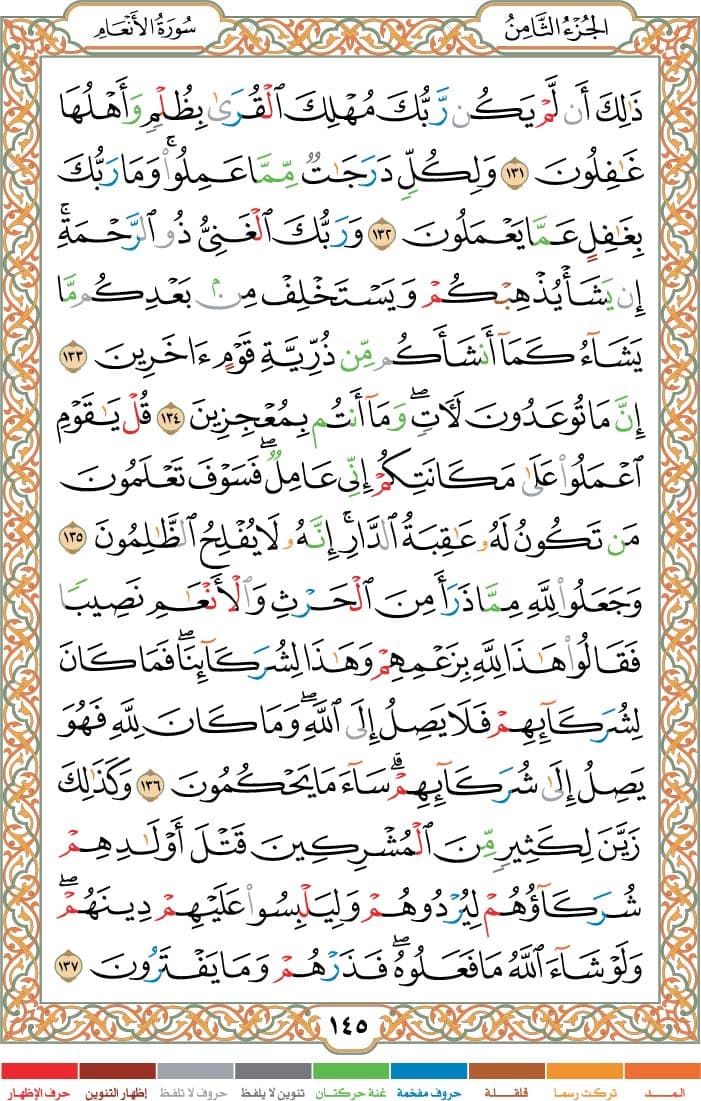 الجُزْءُ الثَّامِنُ
سُورَةُ الأَنْعَامِ
ذَٰلِكَ أَن لَّمْ يَكُن رَّبُّكَ مُهْلِكَ ٱلْقُرَىٰ بِظُلْمٍ وَأَهْلُهَا
غَٰفِلُونَ ١٣١ وَلِكُلٍّ دَرَجَٰتٌ مِّمَّا عَمِلُوا۟ ۚ وَمَا رَبُّكَ
بِغَٰفِلٍ عَمَّا يَعْمَلُونَ ١٣٢ وَرَبُّكَ ٱلْغَنِىُّ ذُو ٱلرَّحْمَةِ ۚ
إِن يَشَأْ يُذْهِبْكُمْ وَيَسْتَخْلِفْ مِنۢ بَعْدِكُم مَّا
يَشَآءُ كَمَآ أَنشَأَكُم مِّن ذُرِّيَّةِ قَوْمٍ ءَاخَرِينَ ١٣٣
إِنَّ مَا تُوعَدُونَ لَءَاتٍ ۖ وَمَآ أَنتُم بِمُعْجِزِينَ ١٣٤ قُلْ يَٰقَوْمِ
ٱعْمَلُوا۟ عَلَىٰ مَكَانَتِكُمْ إِنِّى عَامِلٌ ۖ فَسَوْفَ تَعْلَمُونَ
مَن تَكُونُ لَهُۥ عَٰقِبَةُ ٱلدَّارِ ۚ إِنَّهُۥ لَا يُفْلِحُ ٱلظَّٰلِمُونَ ١٣٥
وَجَعَلُوا۟ لِلَّهِ مِمَّا ذَرَأَ مِنَ ٱلْحَرْثِ وَٱلْأَنْعَٰمِ نَصِيبًا
فَقَالُوا۟ هَٰذَا لِلَّهِ بِزَعْمِهِمْ وَهَٰذَا لِشُرَكَآئِنَا ۖ فَمَا كَانَ
لِشُرَكَآئِهِمْ فَلَا يَصِلُ إِلَى ٱللَّهِ ۖ وَمَا كَانَ لِلَّهِ فَهُوَ
يَصِلُ إِلَىٰ شُرَكَآئِهِمْ ۗ سَآءَ مَا يَحْكُمُونَ ١٣٦ وَكَذَٰلِكَ
زَيَّنَ لِكَثِيرٍ مِّنَ ٱلْمُشْرِكِينَ قَتْلَ أَوْلَٰدِهِمْ
شُرَكَآؤُهُمْ لِيُرْدُوهُمْ وَلِيَلْبِسُوا۟ عَلَيْهِمْ دِينَهُمْ ۖ
وَلَوْ شَآءَ ٱللَّهُ مَا فَعَلُوهُ ۖ فَذَرْهُمْ وَمَا يَفْتَرُونَ ١٣٧
١٤٥
المـــد تركت رسما قلقـلة حروف مفخمة غنة حركتان تنوين لا يلفظ حروف لا تلفظ إظهار التنوين حرف الإظهار